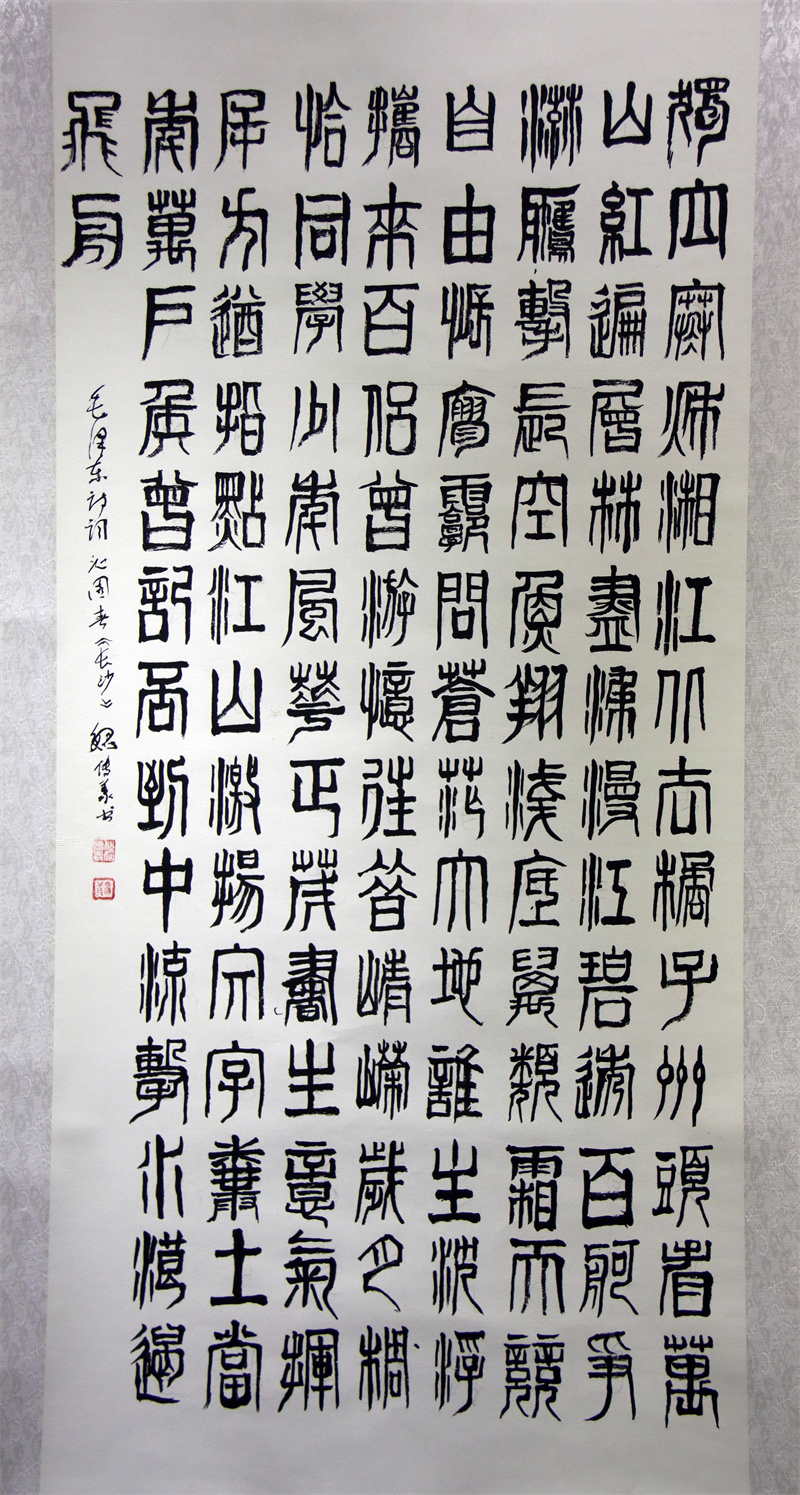 獨立寒秋湘江北去橘子州頭看萬
山紅遍層林盡染漫江碧透百舸爭
流鷹擊長空魚翔淺底萬類霜天競
自由悵寥廓問蒼茫大地誰主沉浮
攜來百侶曾游憶往昔崢嶸歲月稠
恰同學少年風華正茂書生意氣揮
斥方遒指點江山激揚文字糞土當
年萬戶侯曾記否到中流擊水浪遏
飛舟
毛泽东诗词 沁园春《长沙》 魏传义书